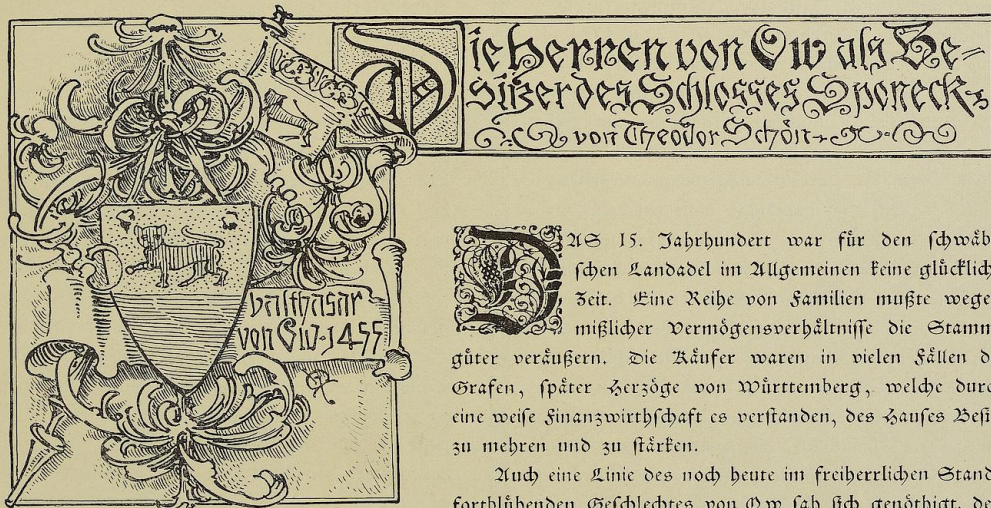 Die Herren von Ow als Be-
sitzer des Schlosses Sponeck
von Theodor Schön
valthasar
von Ow 1455
DAS 15. Jahrhundert war für den schwäb
schen Landadel im Allgemeinen keine glücklich
Zeit. Eine Reihe von Familien mußte wege
mißlicher Vermögensverhältnisse die Stamm
güter veräußern. Die Käufer waren in vielen Fällen d
Grafen, später Herzöge von Württemberg, welche durc
eine weise Finanzwirthschaft es verstanden, des Hauses Besi
zu mehren und zu stärken.
Auch eine Linie des noch heute im freiherrlichen Stand
fortblühenden Geschlechtes von Ow sah sich genöthigt, de